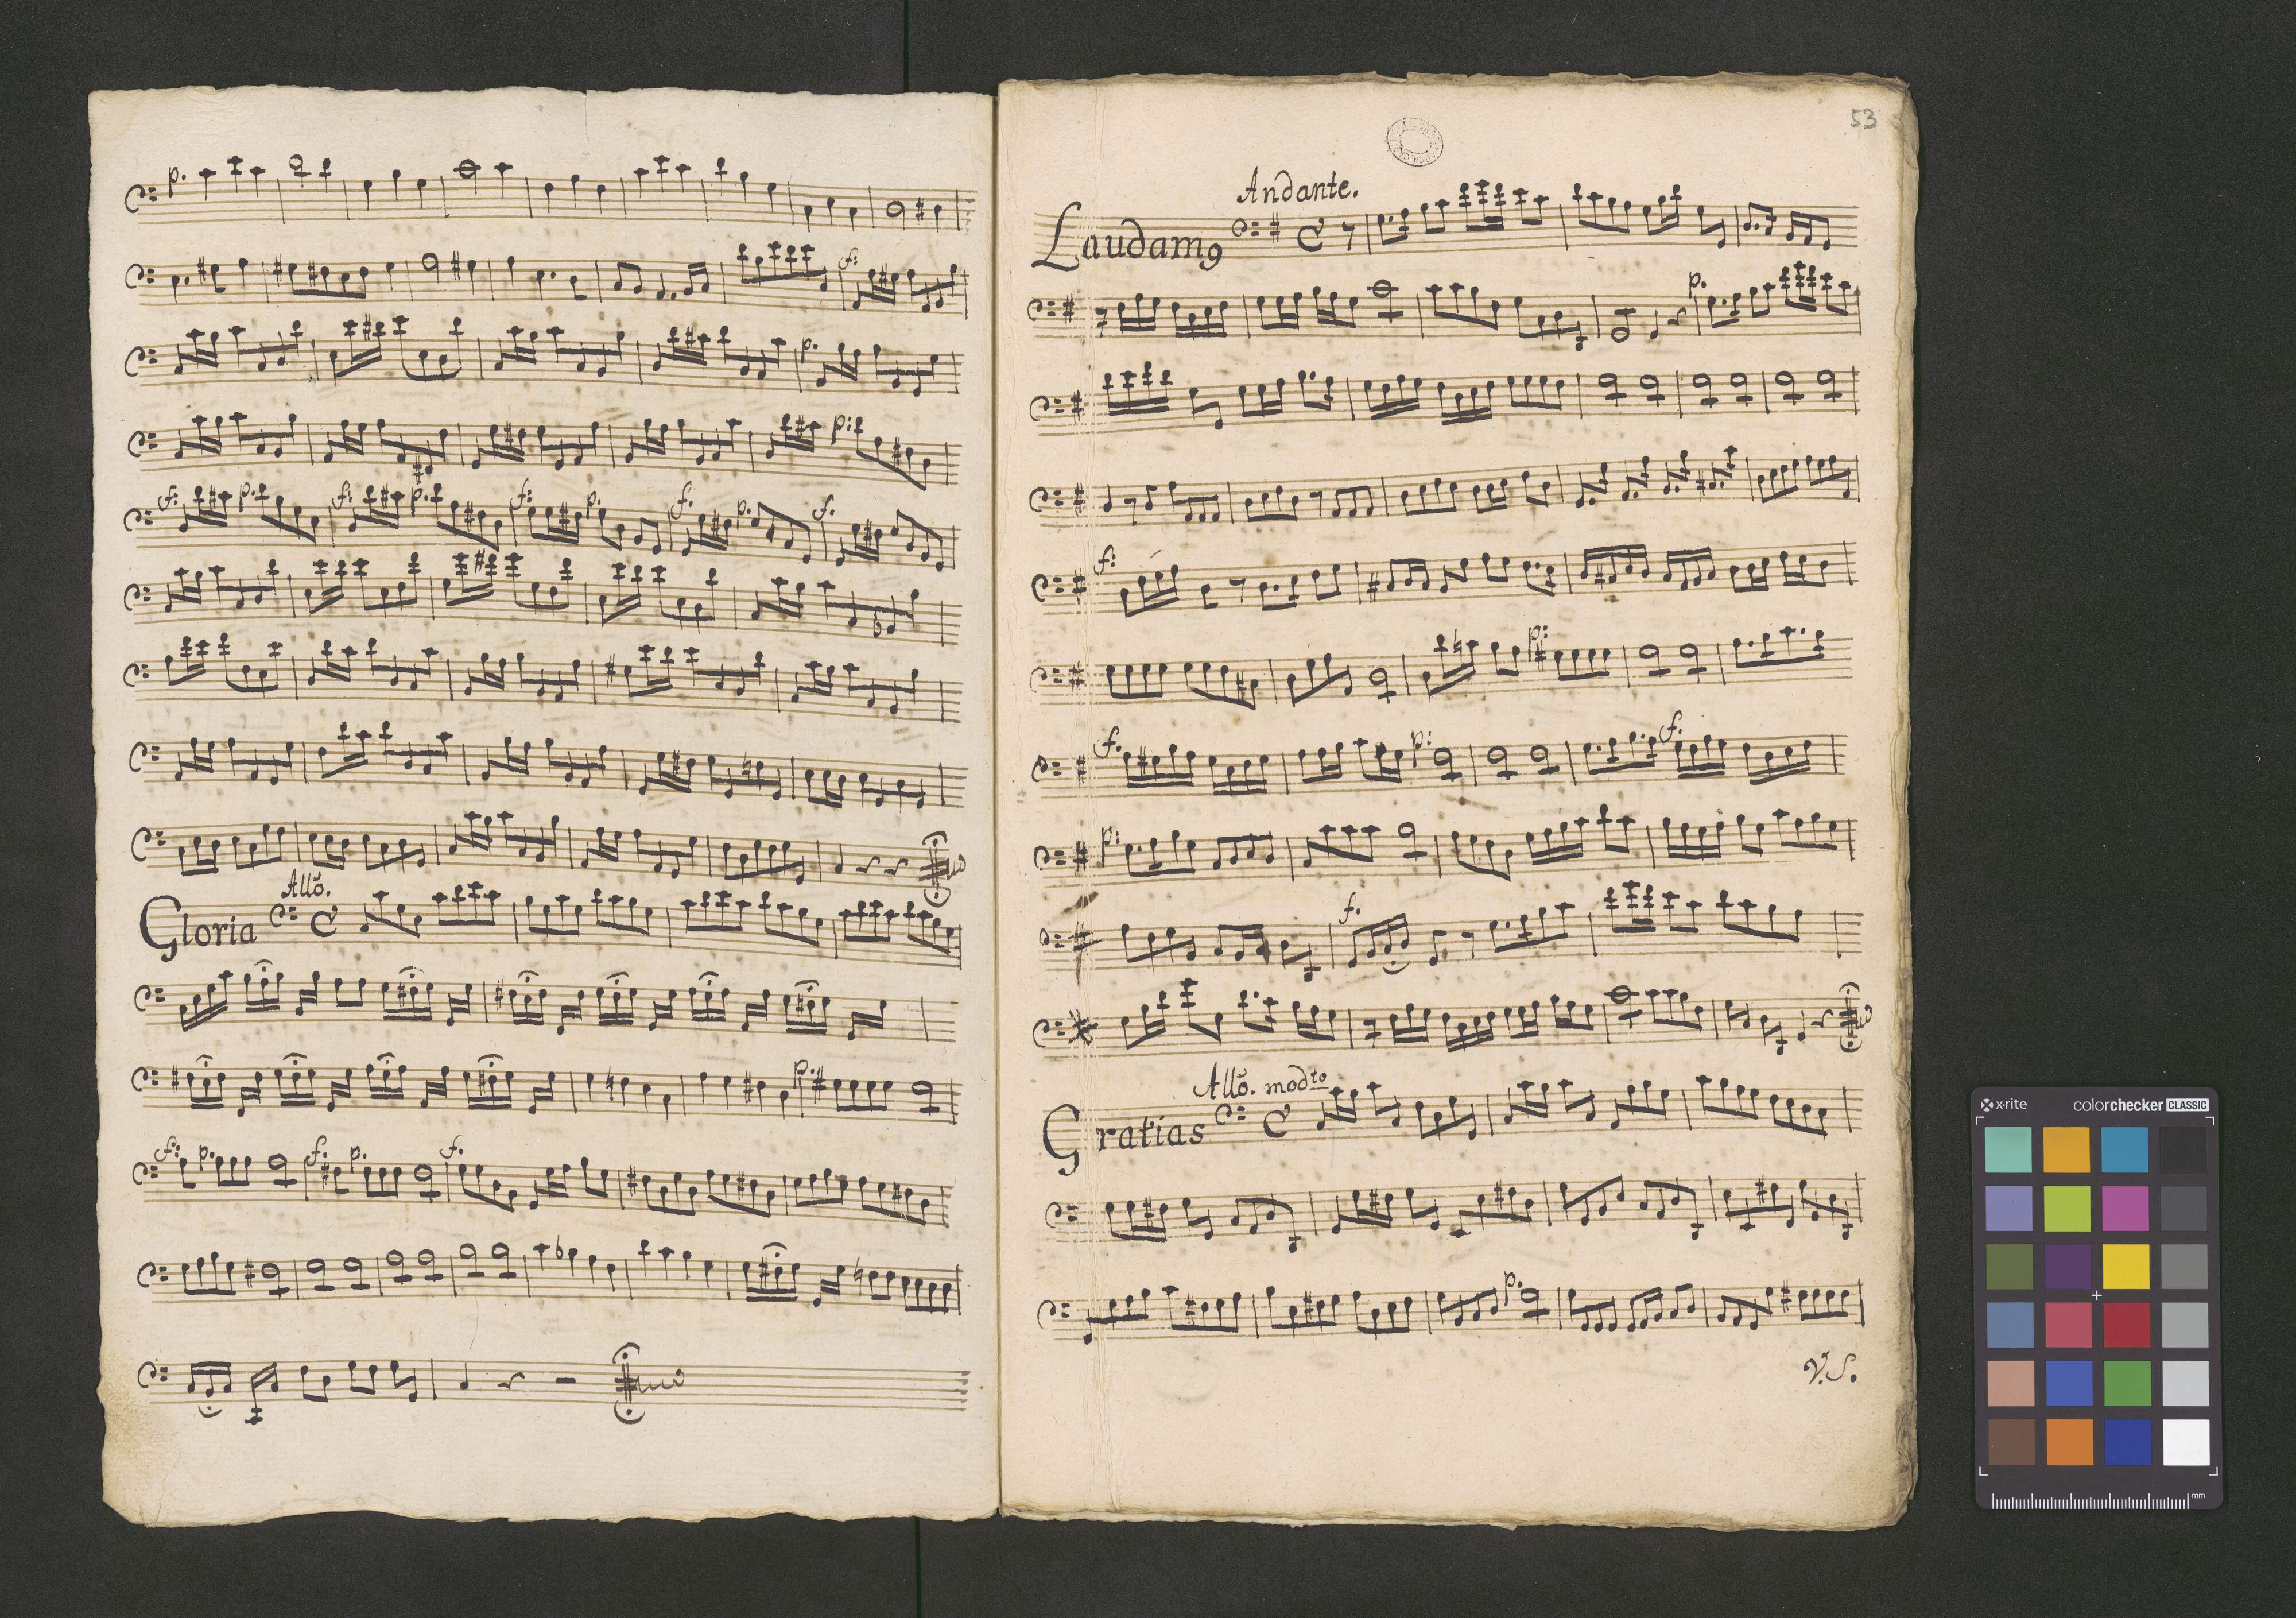 p.
f:
p.
p:
f: p. f: p. f: p. f. p. f.
Allo.
Gloria
p:
f: p. f. p. f.
53
Andante.
Laudam9
p.
f:
p:
f. p: f.
p:
f.
Allo. modto
Gratias
p.
V. S.
x-rite colorchecker CLASSIC
mm